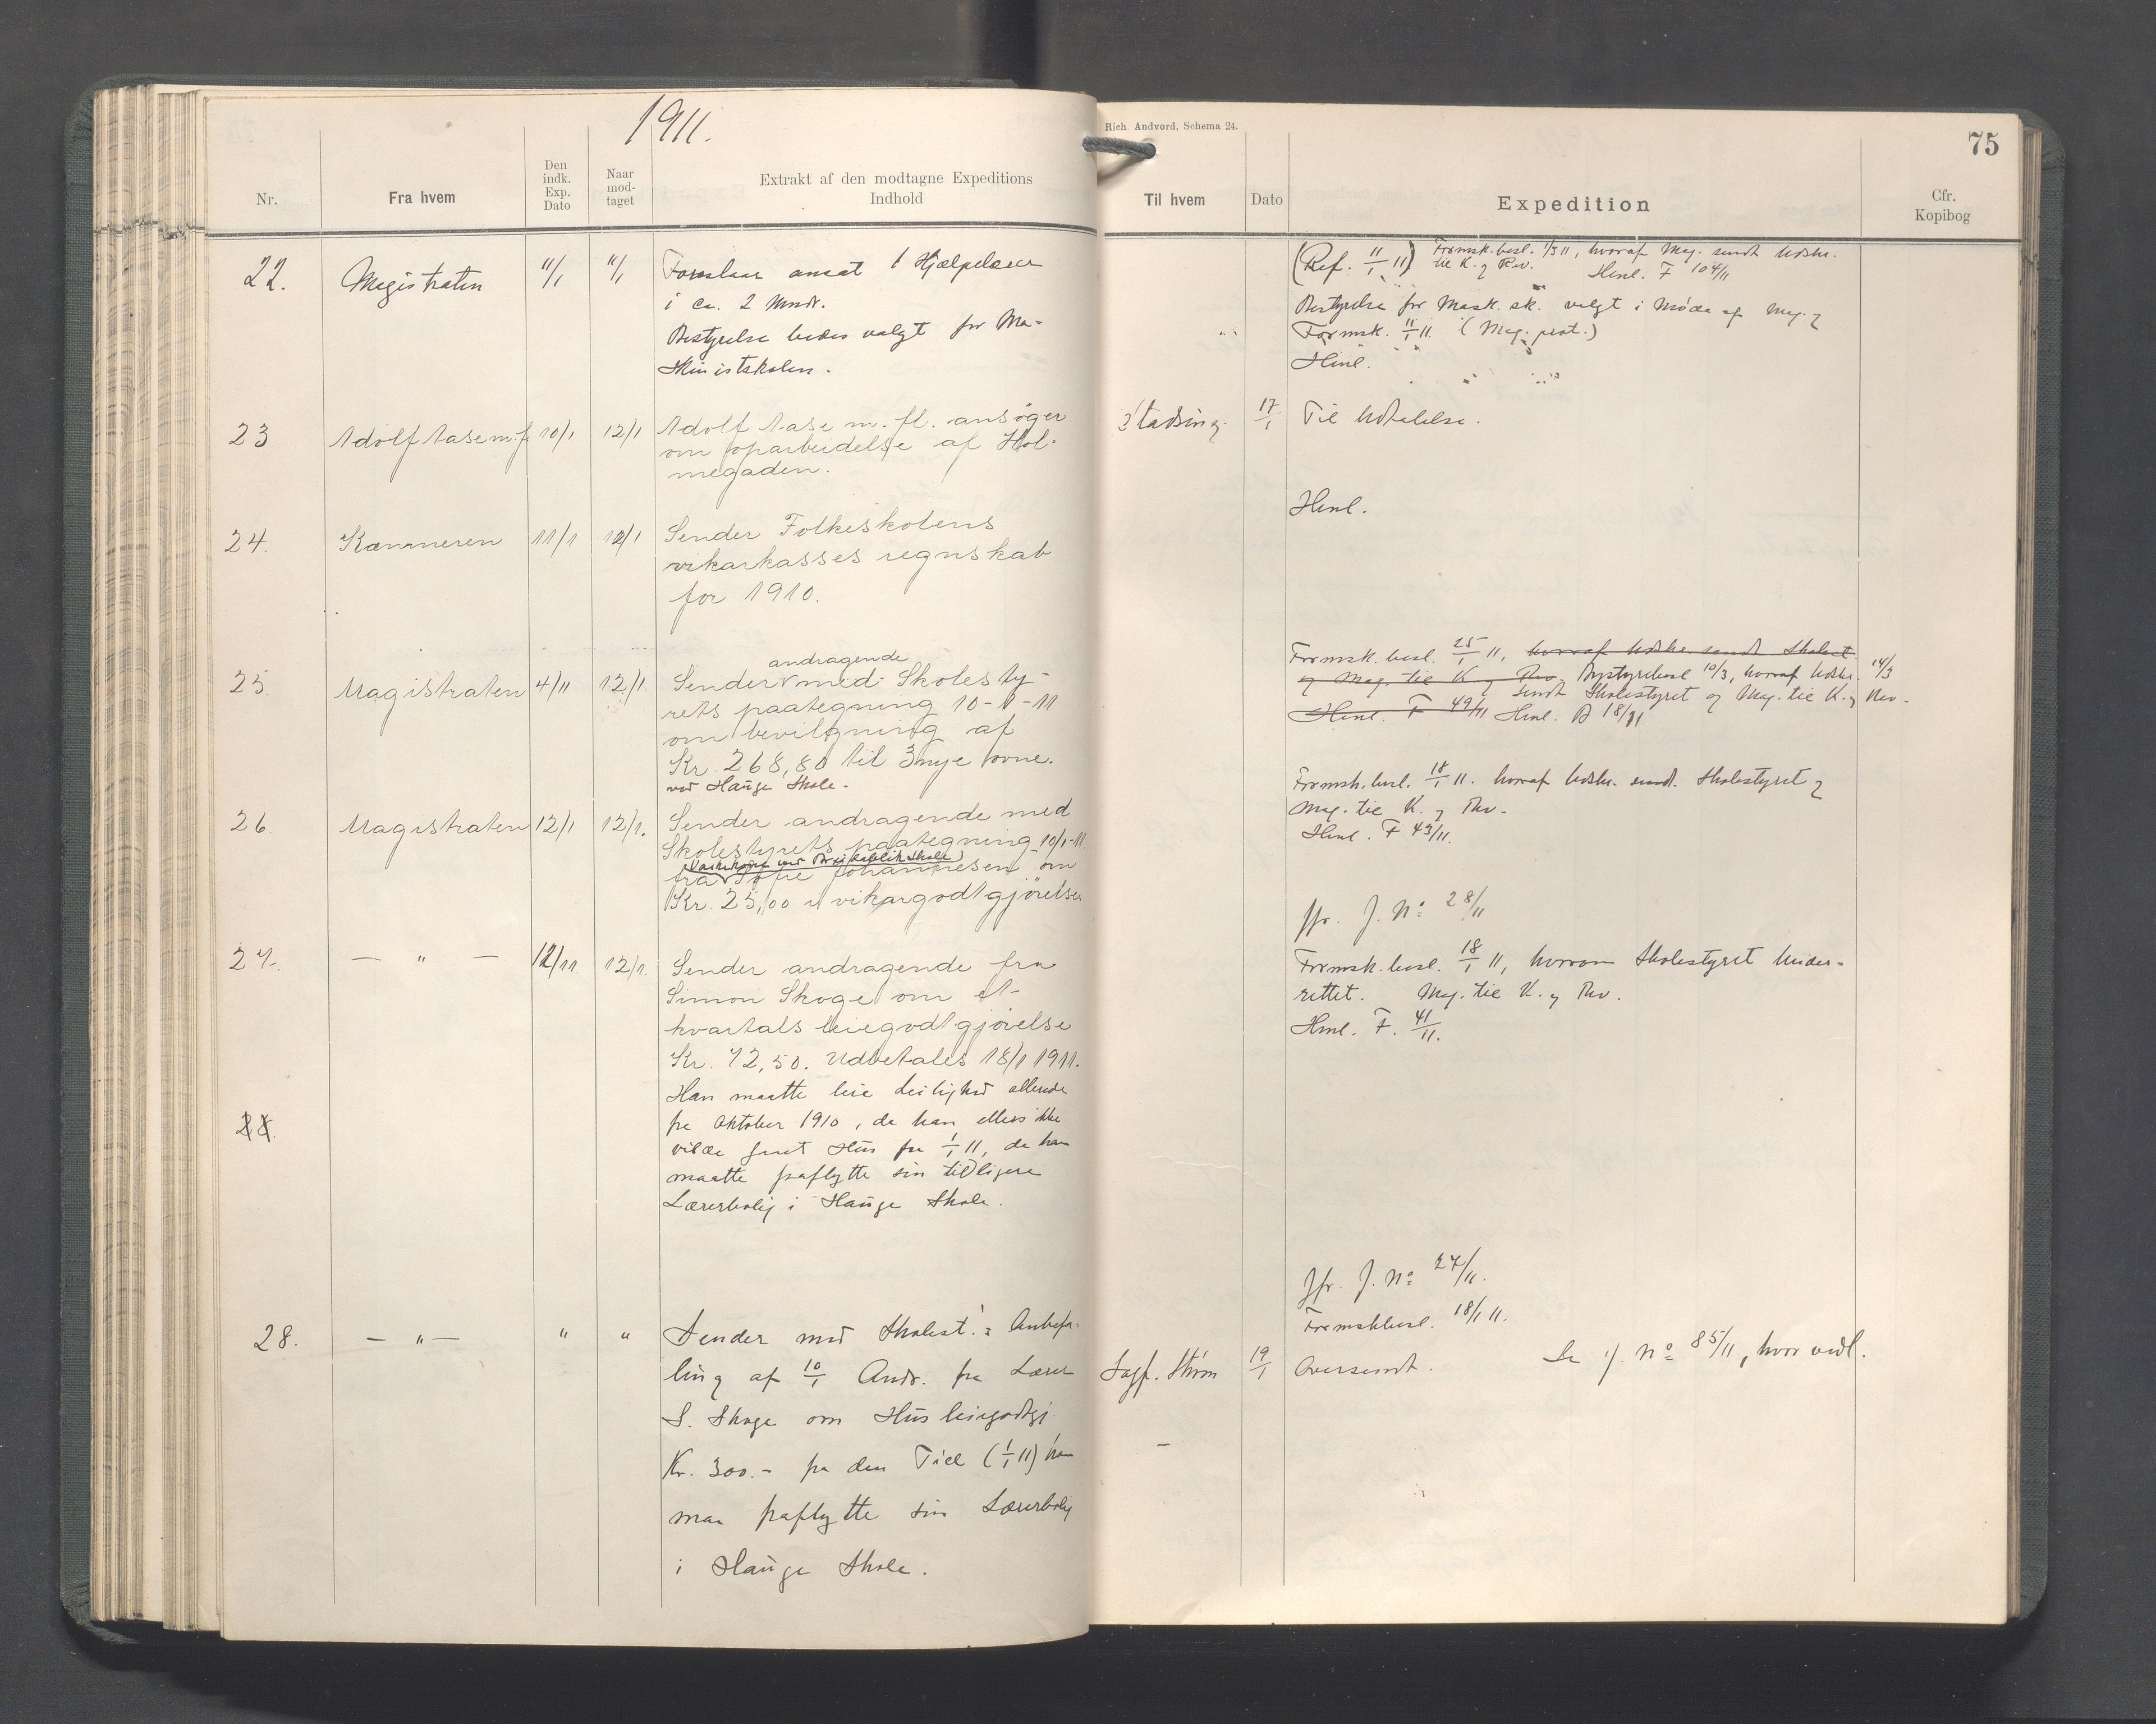 1911.
Nr.
Fra hvem
Den indk. Exp. Dato
Naar mod- taget
Extrakt af den modtagne Expeditions Indhold
22.
Magistraten
11/1
11/1
Foreslaar ansat 1 Hjælpelærer
i ca. 2 Mndr.
Bestyrelse bedes valgt for Ma-
skinistskolen.
23
Adolf Aase m. fl
10/1
12/1
Adolf Aase m. fl. ansøger
om oparbeidelse af Hol-
megaden.
24.
Kæmneren
11/1
12/1
Sender Folkeskolens
vikarkasses regnskab
for 1910.
25.
Magistraten
4/11
12/1.
andragende
Sender med Skolesty-
rets paategning 10-1-11
om bevilgning af
Kr. 268,80 til 3 nye ovne.
ved Hauge Skole.
26.
Magistraten
12/1
12/1.
Sender andragende med
Skolestyrets paategning 10/1-11
fra Sofie Johannesen om
Kr. 25,00 i vikargodtgjørelse
27.
— " —
12/11
12/1.
Sender andragende fra
Simon Skoge om et
kvartals leiegodtgjørelse
Kr. 72,50. Udbetales 18/1 1911.
Han maatte leie Leilighed allerede
fra Oktober 1910, da han ellers ikke
vilde faaet Hus fra 1/1 11, da han
maatte fraflytte sin tidligere
Lærerbolig i Hauge Skole.
28.
28.
— " —
"
"
Sender med Skolest.'s Anbefa-
ling af 10/1 Andr. fra Lærer
S. Skoge om Husleiegodtgj.
Kr. 300.- fra den Tid (1/1 11) han
maa fraflytte sin Lærerbolig
i Hauge Skole.
Rich. Andvord, Schema 24.
75
Til hvem
Dato
Expedition
Cfr. Kopibog
(Ref. 11/1 11) Formsk.besl. 1/3 11, hvoraf Mag. sendt Udskr.
til K. og Rev. Henl. F 104/11
Bestyrelse for Mask. sk. valgt i Møde af Mag. og
Formsk. 11/1 11. (Mag. prot.)
Henl.
Stadsing.
17/1
Til Udtalelse.
Henl.
Formsk. besl. 25/1 11, hvoraf Udskr. sendt Skolest.
og Mag. til K. og Rev. Bystyrebesl. 10/3, hvoraf Udskr. 14/3
sendt Skolestyret og Mag. til K. og Rev.
Henl. F 49/11 Henl. B 18/11
Formsk. besl. 18/1 11. hvoraf Udskr. sendt. Skolestyret og
Mag. til K. og Rev.
Henl. F 43/11.
Jfr. J. No 28/11
Formsk. besl. 18/1 11, hvorom Skolestyret Under-
rettet. Mag. til K. og Rev.
Henl. F. 41/11.
Jfr. J. No 27/11.
Formskbesl. 18/1 11.
Sagf. Strøm
19/1
Oversendt. Se J. No 85/11, hvor vedl.